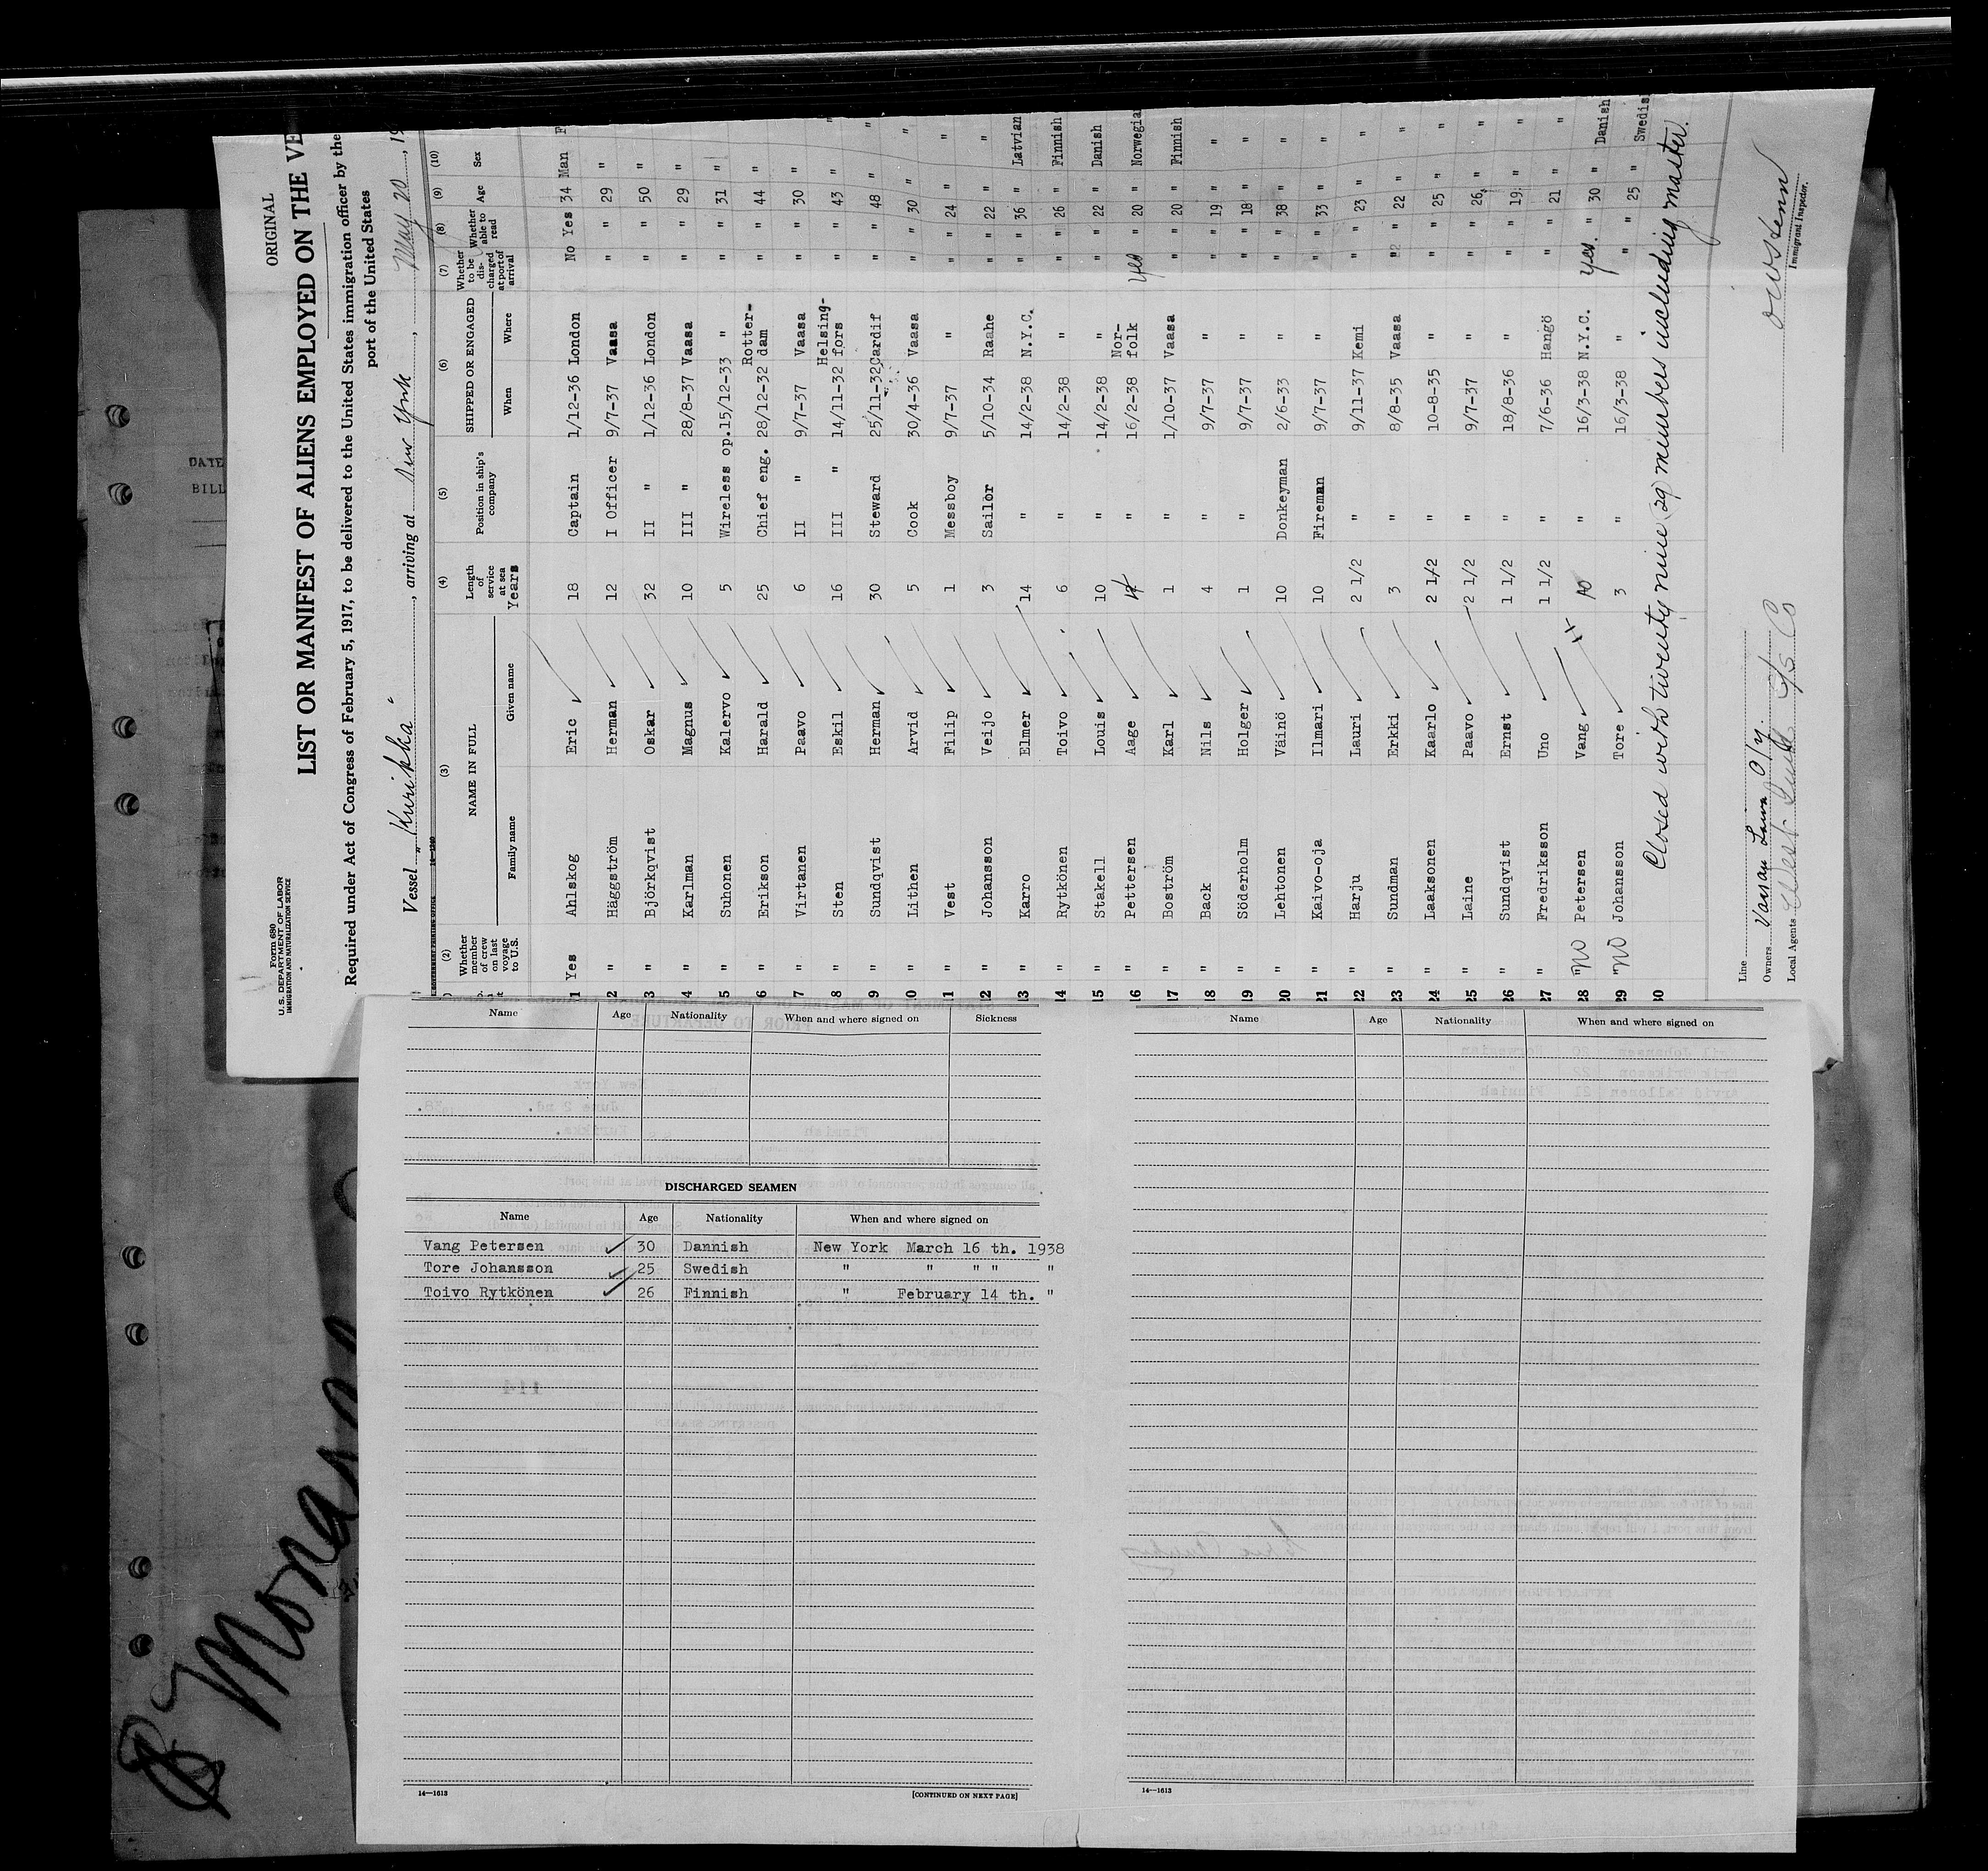 ORIGINAL
Form 680
U.S. DEPARTMENT OF LABOR
IMMIGRATION AND NATURALIZATION SERVICE
LIST OR MANIFEST OF ALIENS EMPLOYED ON THE VE
Required under Act of Congress of February 5, 1917, to be delivered to the United States immigration officer by the
port of the United States
Vessel "Kurikka", arriving at New York, May 20, 19
(2) (3) (4) (5) (6) (7) (8) (9) (10)
Whether member of crew on last voyage to U.S. NAME IN FULL Length of service at sea Position in ship's company SHIPPED OR ENGAGED Whether to be discharged at port of arrival Whether able to read Age Sex
Family name Given name Years When Where
1 Yes Ahlskog Eric 18 Captain 1/12-36 London No Yes 34 Man F
2 " Häggström Herman 12 I Officer 9/7-37 Vaasa " " 29 "
3 " Björkqvist Oskar 32 II " 1/12-36 London " " 50 "
4 " Karlman Magnus 10 III " 28/8-37 Vaasa " " 29 "
5 " Suhonen Kalervo 5 Wireless op. 15/12-33 " " " 31 "
6 " Erikson Harald 25 Chief eng. 28/12-32 Rotter-dam " " 44 "
7 " Virtanen Paavo 6 II " 9/7-37 Vaasa " " 30 "
8 " Sten Eskil 16 III " 14/11-32 Helsing-fors " " 43 " "
9 " Sundqvist Herman 30 Steward 25/11-32 Cardif " " 48 " "
10 " Lithen Arvid 5 Cook 30/4-36 Vaasa " " 30 " "
11 " Vest Filip 1 Messboy 9/7-37 " " " 24 " "
12 " Johansson Veijo 3 Sailor 5/10-34 Raahe " " 22 " "
13 " Karro Elmer 14 " 14/2-38 N.Y.C. " " 36 " Latvian
14 " Rytkönen Toivo 6 " 14/2-38 " " " 26 " Finnish
15 " Stakell Louis 10 " 14/2-38 " " " 22 " Danish
16 " Pettersen Aage " 16/2-38 Nor-folk yes " 20 " Norwegia
17 " Boström Karl 1 " 1/10-37 Vaasa " " 20 " Finnish
18 " Back Nils 4 " 9/7-37 " " " 19 " "
19 " Söderholm Holger 1 " 9/7-37 " " " 18 " "
20 " Lehtonen Väinö 10 Donkeyman 2/6-33 " " " 38 " "
21 " Kaivo-oja Ilmari 10 Fireman 9/7-37 " " " 33 " "
22 " Harju Lauri 2 1/2 " 9/11-37 Kemi " " 23 " "
23 " Sundman Erkki 3 " 8/8-35 Vaasa " " 22 " "
24 " Laaksonen Kaarlo 2 1/2 " 10-8-35 " " " 25 " "
25 " Laine Paavo 2 1/2 " 9/7-37 " " " 26 " "
26 " Sundqvist Ernst 1 1/2 " 18/8-36 " " " 19 " "
27 " Fredriksson Uno 1 1/2 " 7/6-36 Hangö " " 21 " "
28 "NO Petersen Vang 10 " 16/3-38 N.Y.C. yes. " 30 " Danish
29 "NO Johansson Tore 3 " 16/3-38 " " " 25 " Swedis
30 Closed with twenty nine (29) members including master.
Line
Owners Vasan Laiva O/y.
Local Agents West Gulf S/S Co
Immigrant Inspector.
DATE
BILL
Name Age Nationality When and where signed on Sickness
DISCHARGED SEAMEN
Name Age Nationality When and where signed on
Vang Petersen 30 Dannish New York March 16 th. 1938
Tore Johansson 25 Swedish " " " " "
Toivo Rytkönen 26 Finnish " February 14 th. "
14—1613
[CONTINUED ON NEXT PAGE]
Name Age Nationality When and where signed on
14—1613